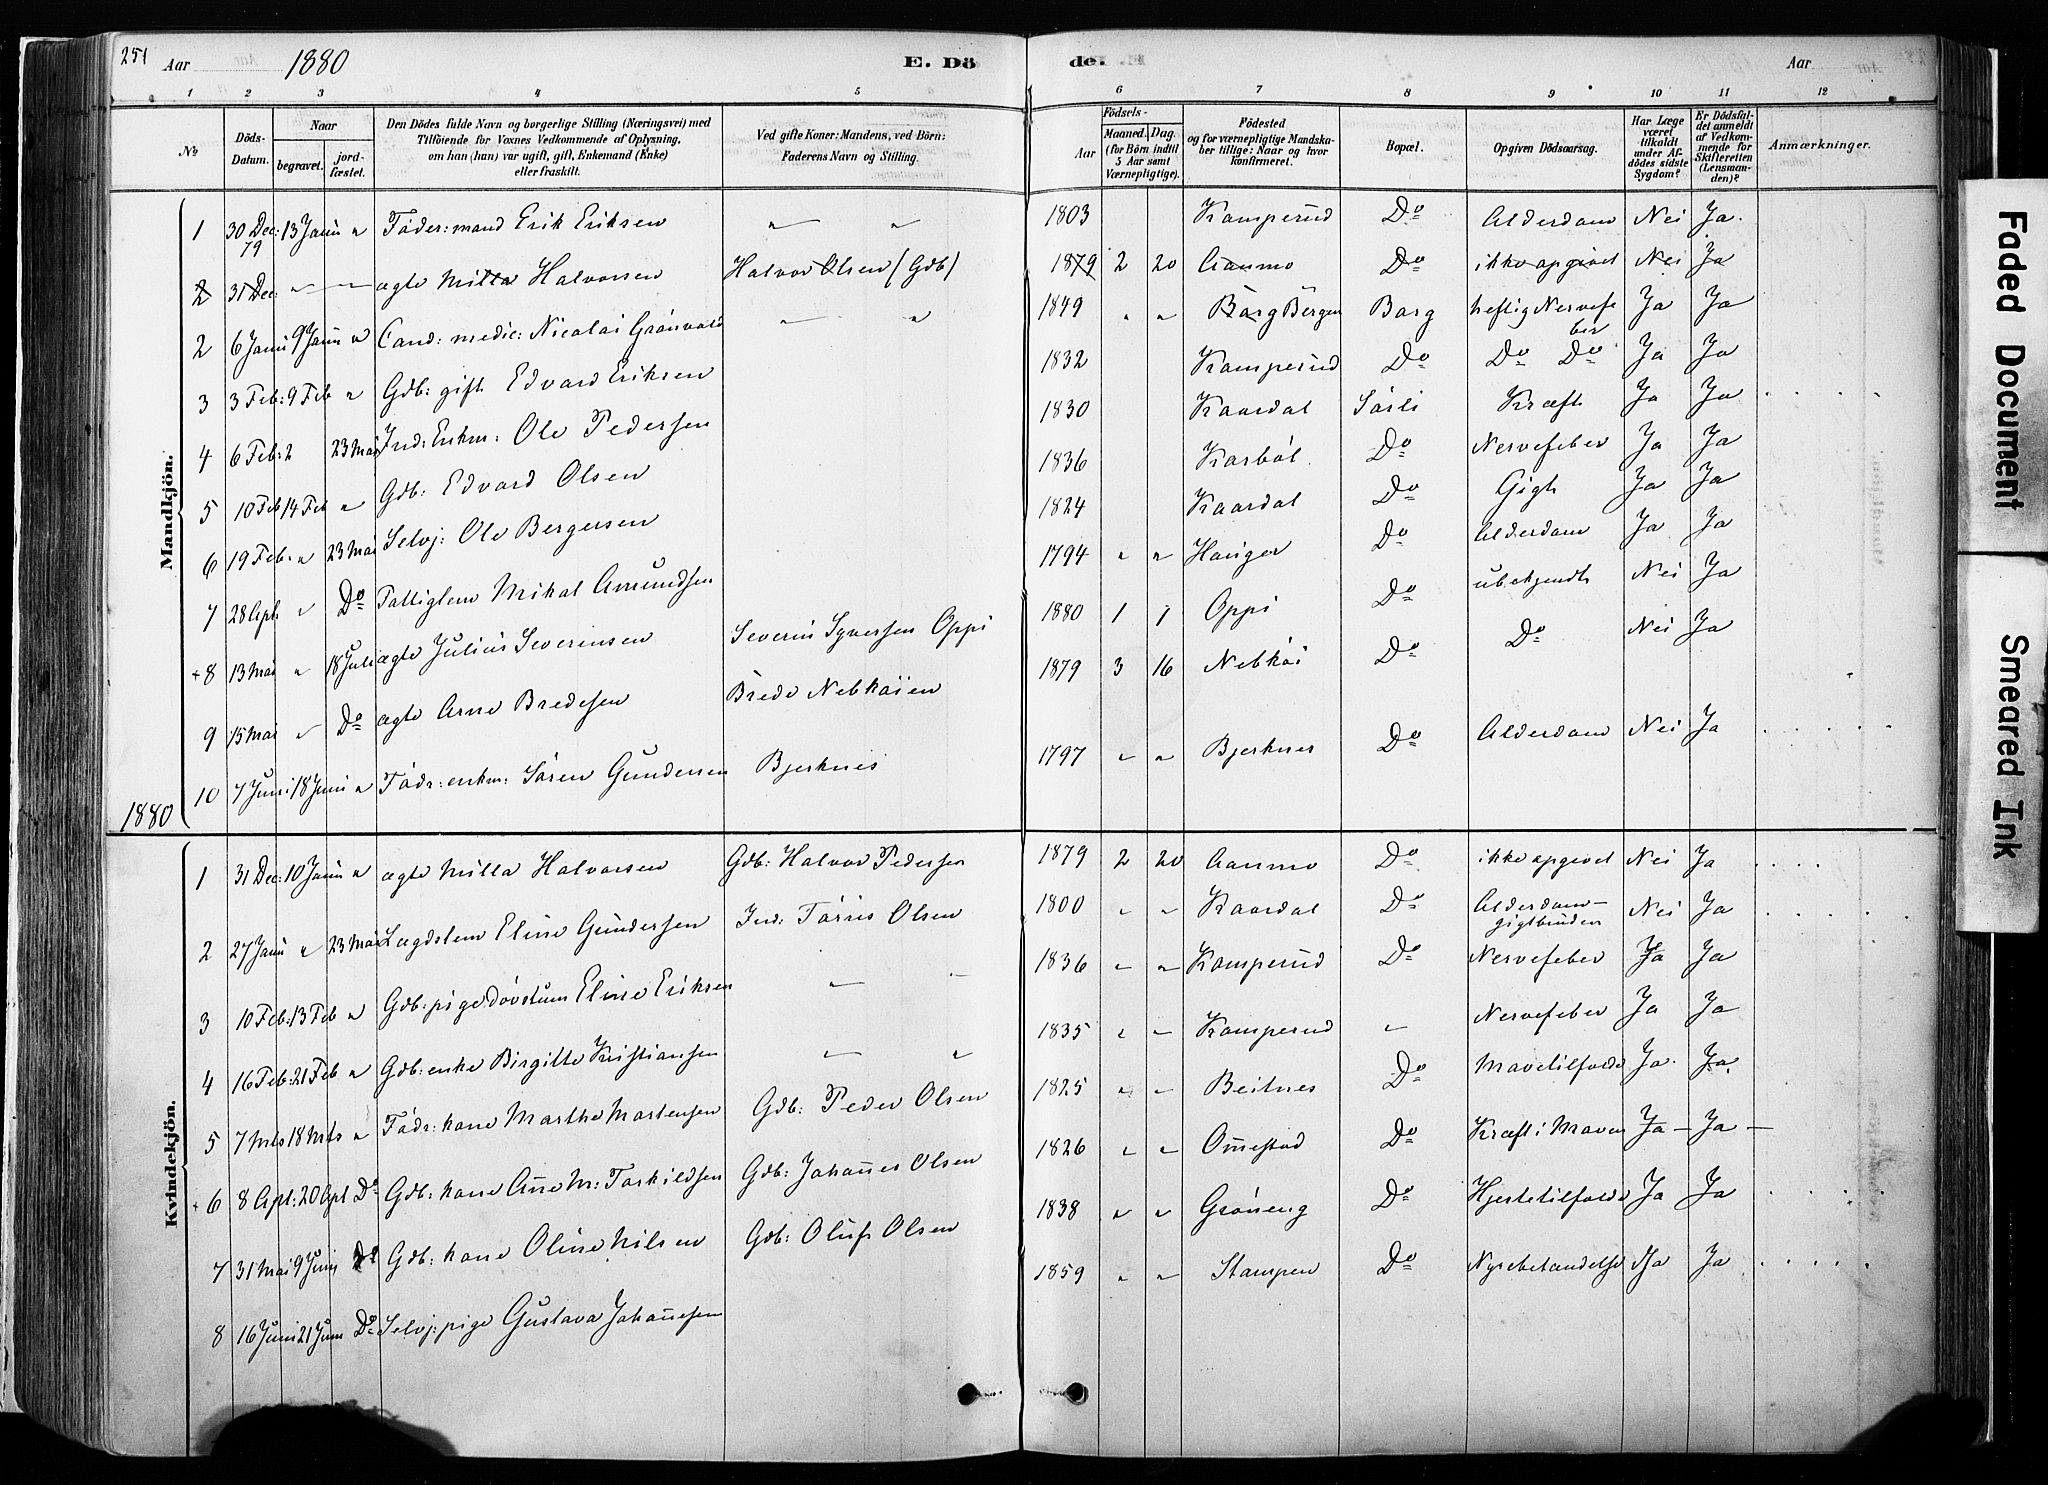 251 Aar 1880 E. Dö de. Aar
1 2 3 4 5 6 7 8 9 10 11 12
№ Döds-Datum. Naar begravet. jordfæstet. Den Dödes fulde Navn og borgerlige Stilling (Næringsvei) med Tilföiende for Voxnes Vedkommende af Oplysning, om han (hun) var ugift, gift, Enkemand (Enke) eller fraskilt. Ved gifte Koner: Mandens, ved Börn: Faderens Navn og Stilling. Födsels- Aar Maaned. Dag. (for Börn indtil 5 Aar samt Værnepligtige). Födested og for værnepligtige Mandskaber tillige: Naar og hvor konfirmeret. Bopæl. Opgiven Dödsaarsag. Har Læge været tilkaldt under Afdödes sidste Sygdom? Er Dödsfaldet anmeldt af Vedkommende for Skifteretten (Lensmanden)? Anmærkninger.
Mandkjön.
1 30 Dec: 79 13 Janu " Föder:mand Erik Eriksen " " 1803 Kamperud Do Alderdom Nei Ja.
2 31 Dec: " " ægte Milla Halvorsen Halvor Olsen (Gdb) 1879 2 20 Aanmo Do ikke opgivet Nei Ja
2 6 Janu 9 Janu " Cand: medic: Nicolai Grönvold " " 1849 " " Borg Bergen Borg heftig Nervefeber Ja Ja
3 3 Feb: 9 Feb " Gdb: gift Edvard Eriksen 1832 Kamperud Do Do Do Ja Ja
4 6 Feb: 2 23 Mai Ind: Enkm: Ole Pedersen 1830 Kaardal Sörli Kræft Ja Ja
5 10 Feb 14 Feb " Gdb: Edvard Olsen 1836 Karböl Do Nervefeber Ja Ja
6 19 Feb: " 23 Mai Selvj: Ole Bergersen 1824 Kaardal Do Gigt Ja Ja
7 28 Apl: " Do Fattiglem Mikal Amundsen 1794 " " Hauger Do Alderdom Ja Ja
+8 13 Mai " 18 Juli ægte Julius Severinsen Severin Syversen Oppi 1880 1 1 Oppi Do ubekjendt Nei Ja
9 15 Mai " Do ægte Arne Bredesen Brede Nebköien 1879 3 16 Nebköi Do Do Nei Ja
10 7 Juni 18 Juni " Födr: enkm: Sören Gundersen Bjerknes 1797 " " Bjerknes Do Alderdom Nei Ja
1880
Kvindekjön.
1 31 Dec: 10 Janu " ægte Milla Halvorsen Gdb: Halvor Pedersen 1879 2 20 Aanmo Do ikke opgivet Nei Ja
2 27 Janu " 23 Mai Lægdslem Eline Gundersen Ind: Törris Olsen 1800 " " Kaardal Do Alderdom- gigtbunden Nei Ja
3 10 Feb: 13 Feb " Gdb: pige Dövstum Eline Eriksen " " 1836 " " Kamperud Do Nervefeber Ja Ja
4 16 Feb: 21 Feb " Gdb: enke Birgitte Kristiansen " " 1835 " " Kamperud " Nervefeber Ja Ja
5 7 Mts 18 Mts " Födr: kone Marthe Mortensen Gdb: Peder Olsen 1825 " " Beitnes Do Mavetilfælde Ja. Ja.
+6 8 Apl: 20 Apl Do Gdb: kone Anne M: Torkildsen Gdb: Johannes Olsen 1826 " " Ommestad Do Kræft i Maven Ja - Ja -
7 31 Mai 9 Juni Do Gdb: kone Oline Nilsen Gdb: Oluf Olsen 1838 " " Gröneng Do Hjertetilfælde Ja Ja
8 16 Juni 21 Juni Do Selvj: pige Gustava Johannesen 1859 " " Stampen Do Nyrebetændelse Ja Ja
Faded Document
Smeared Ink